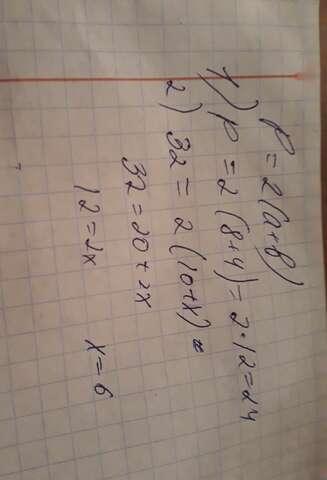 P = 2(a+b)
1) P = 2(8+4) = 2·12 = 24
2) 32 = 2(10+x) =
32 = 20 + 2x
12 = 2x x = 6